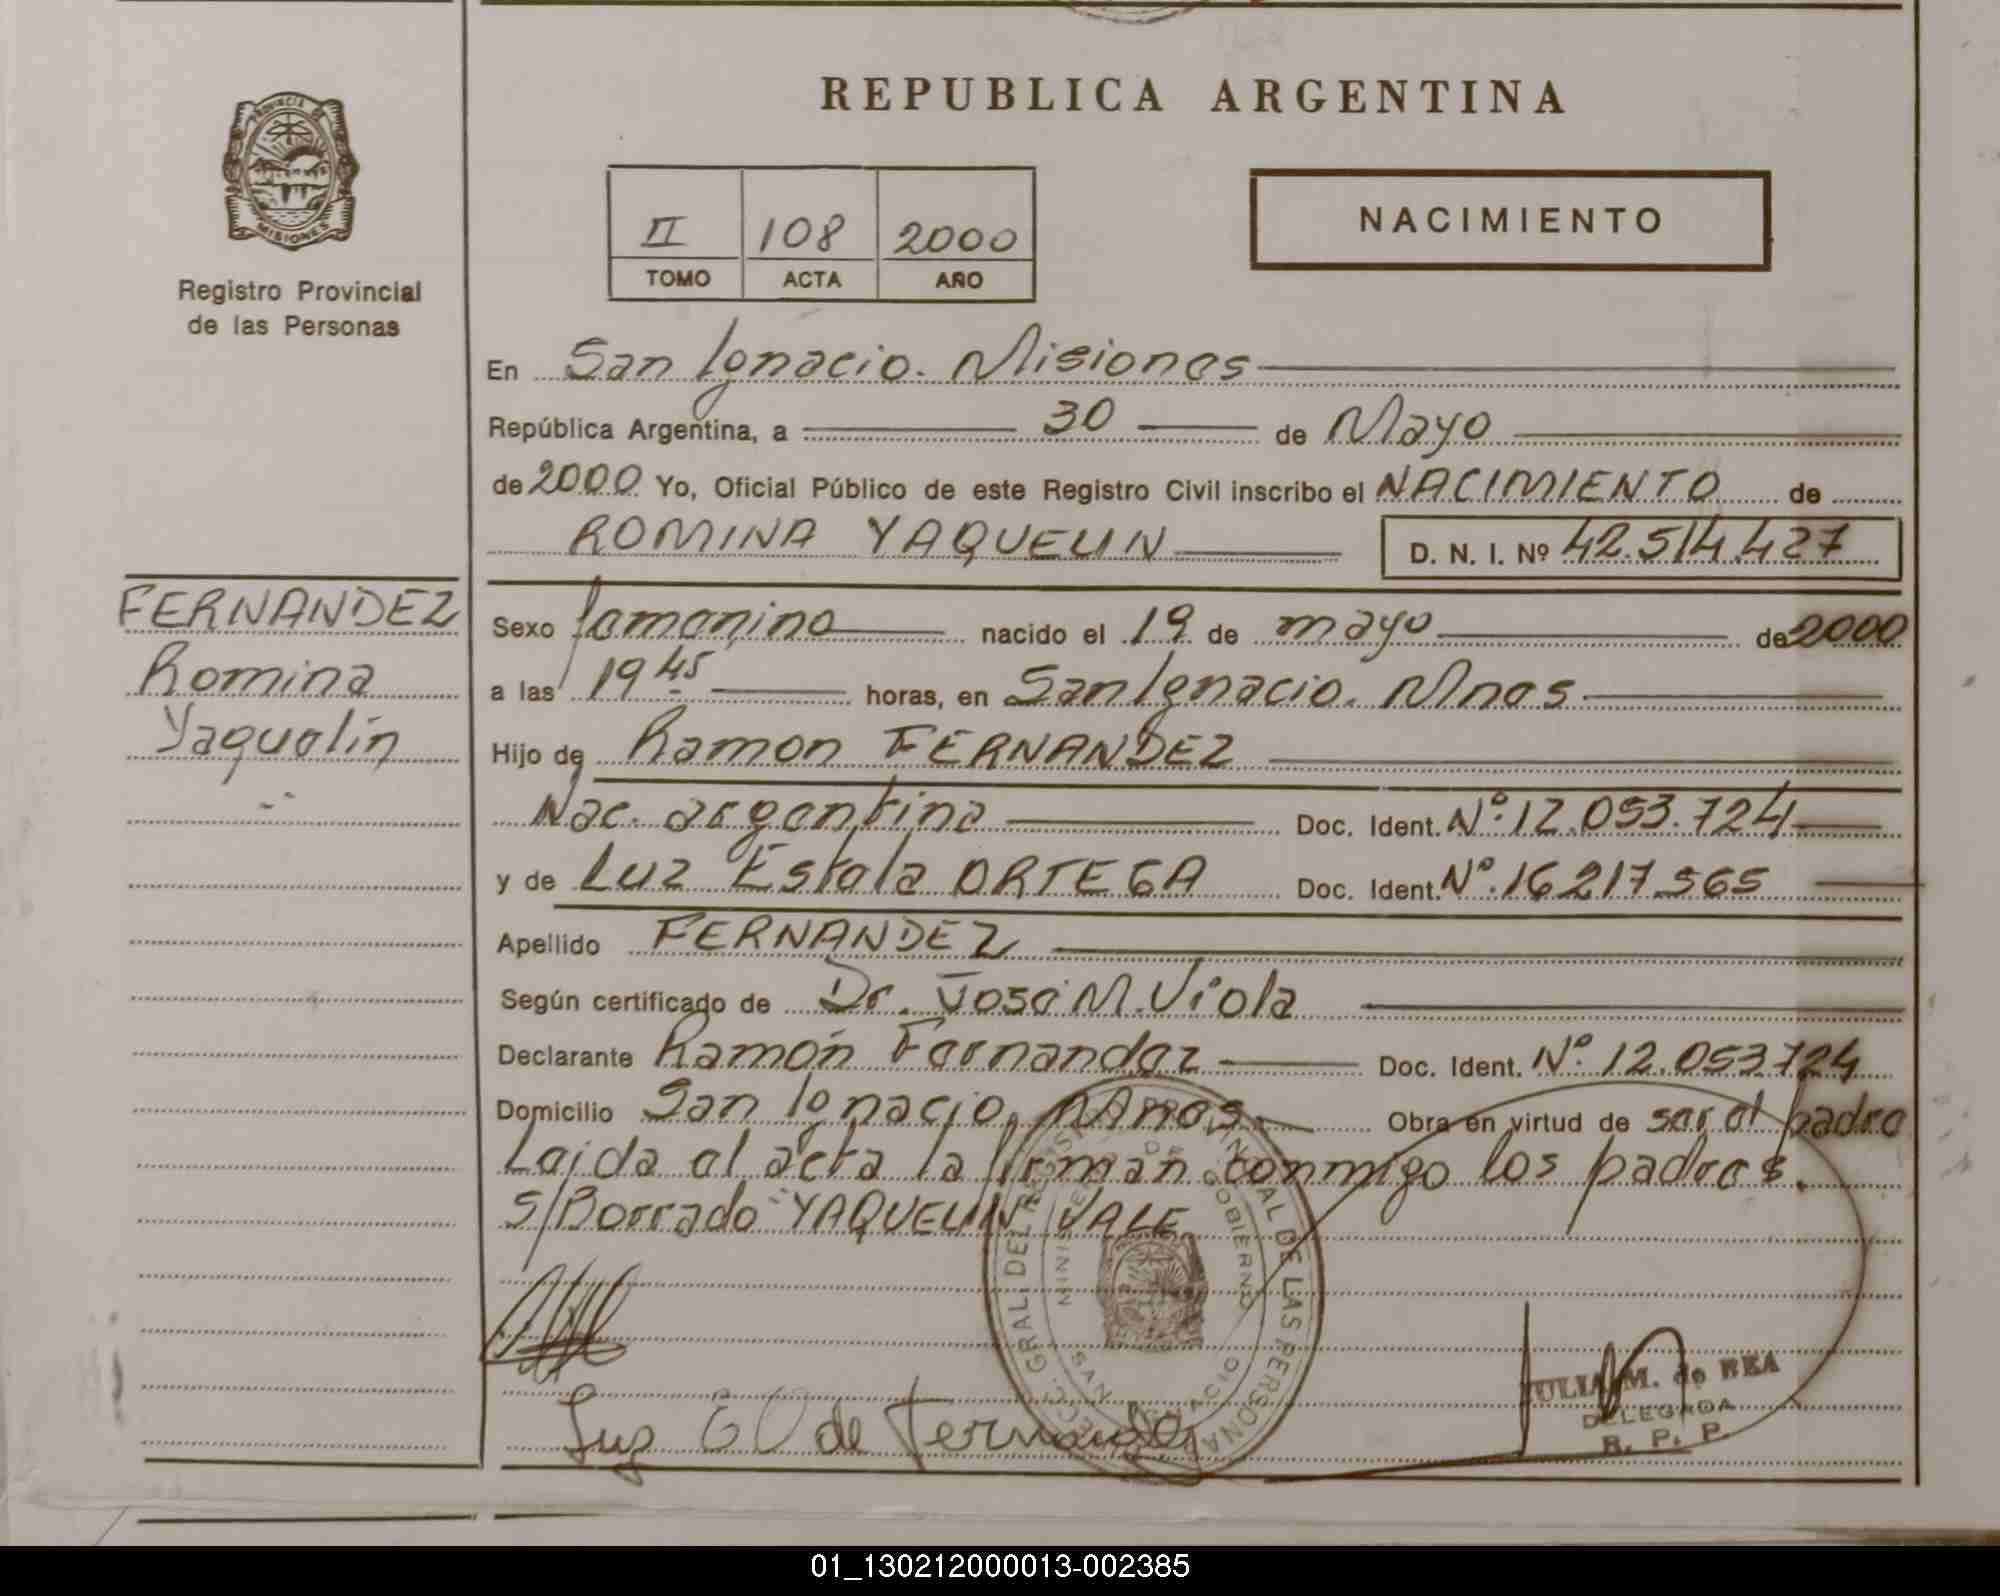 REPUBLICA ARGENTINA
PROVINCIA DE
MISIONES
Registro Provincial
de las Personas
II 108 2000
TOMO ACTA AÑO
NACIMIENTO
En San Ignacio. Misiones
República Argentina, a 30 de Mayo
de 2000 Yo, Oficial Público de este Registro Civil inscribo el NACIMIENTO de
ROMINA YAQUELIN D. N. I. Nº 42.514.427
FERNANDEZ
Romina
Yaquelin
Sexo femenino nacido el 19 de mayo de 2000
a las 19 45 horas, en San Ignacio. Mnes
Hijo de Ramon FERNANDEZ
Nac. argentina Doc. Ident. Nº 12.053.724
y de Luz Estela ORTEGA Doc. Ident. Nº 16217.565
Apellido FERNANDEZ
Según certificado de Dr. José M. Viola
Declarante Ramón Fernandez Doc. Ident. Nº 12.053.724
Domicilio San Ignacio, Mnes. Obra en virtud de ser el padre
Leida el acta la firman conmigo los padres.
S/Borrado "YAQUELIN" VALE
Luz E O de Fernandez
GRAL. DEL REGISTRO PROVINCIAL DE LAS PERSONAS
MINISTERIO DE GOBIERNO
SAN IGNACIO
JULIA M. de REA
DELEGADA
R. P. P.
01_130212000013-002385